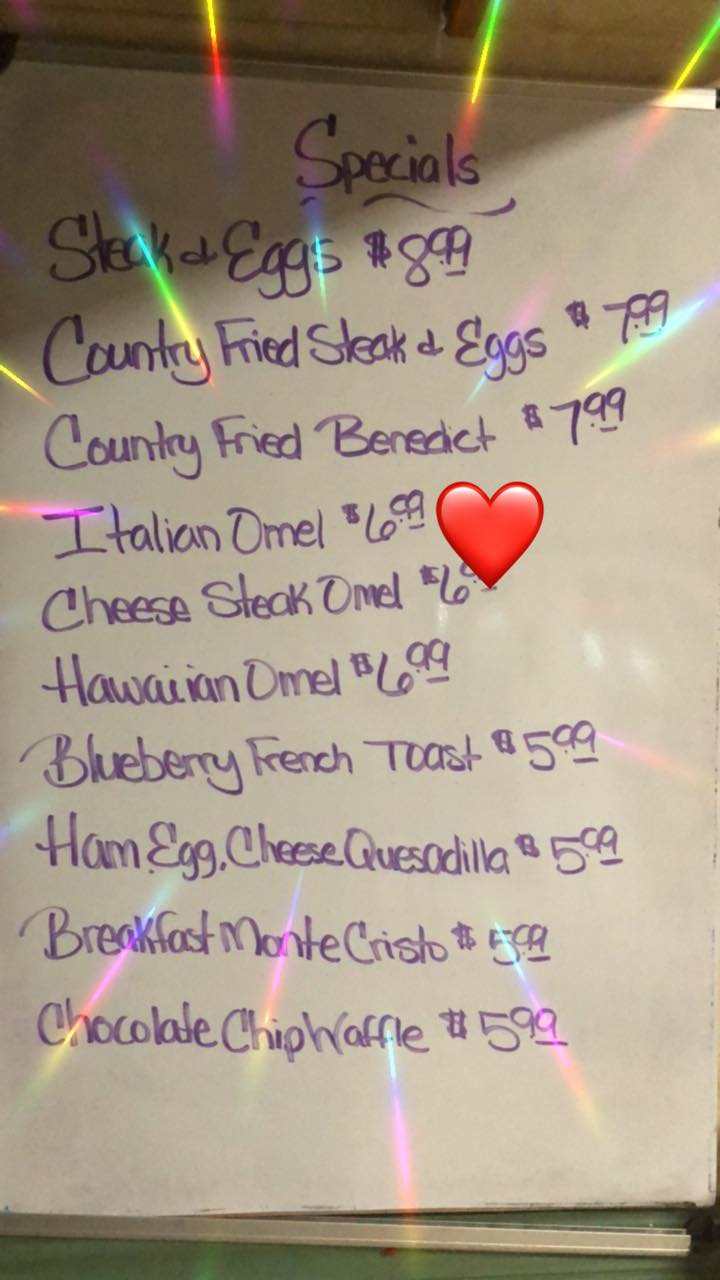 Specials
Steak & Eggs $8.99
Country Fried Steak & Eggs $7.99
Country Fried Benedict $7.99
Italian Omel $6.99
Cheese Steak Omel
Hawaiian Omel $6.99
Blueberry French Toast $5.99
Ham, Egg, Cheese Quesadilla $5.99
Breakfast Monte Cristo $5.99
Chocolate Chip Waffle $5.99